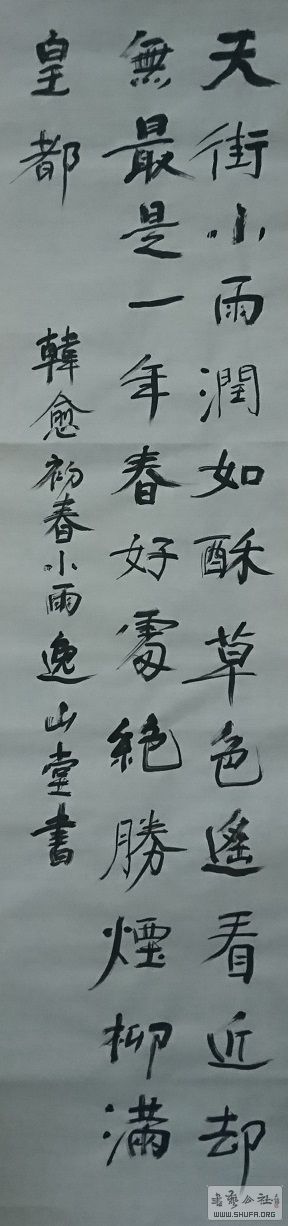 天街小雨潤如酥草色遙看近却
無最是一年春好處絕勝煙柳滿
皇都
韓愈初春小雨逸山堂書
書藝公社
WWW.SHUFA.ORG